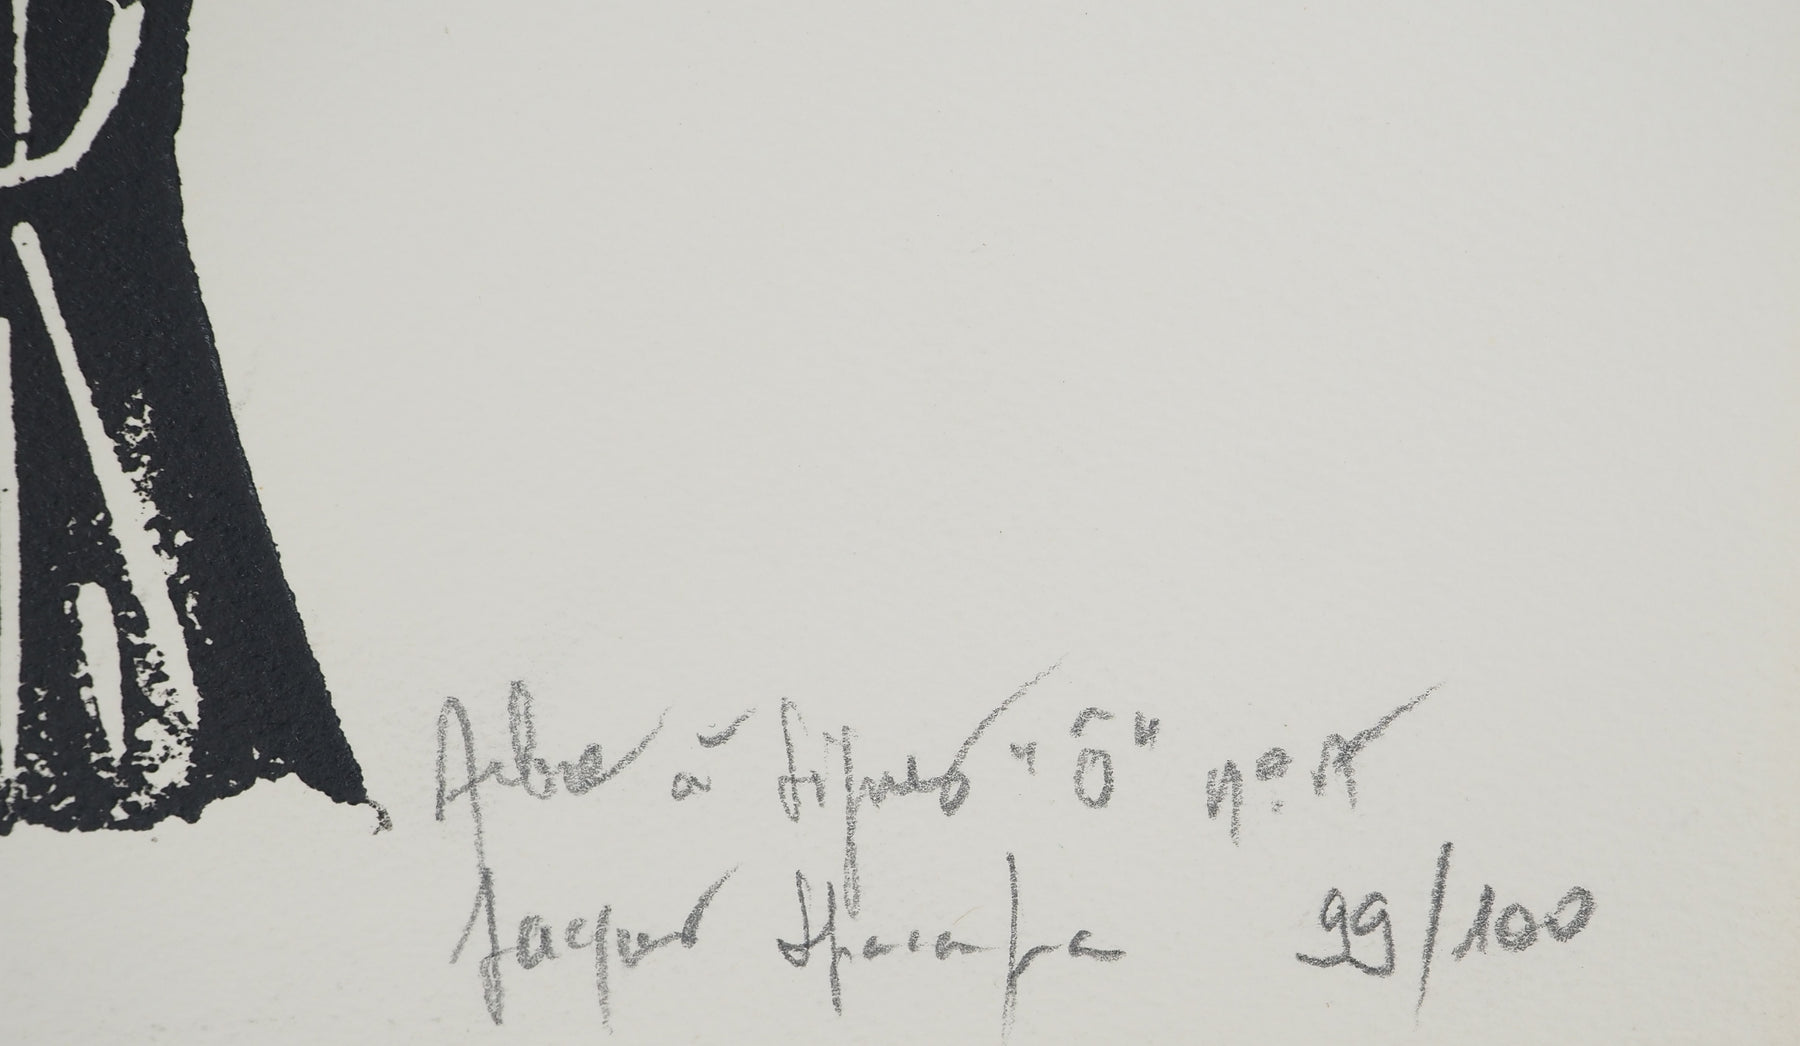 Arbre à signes "Ö" n°
Jacques Spacagna 99/100